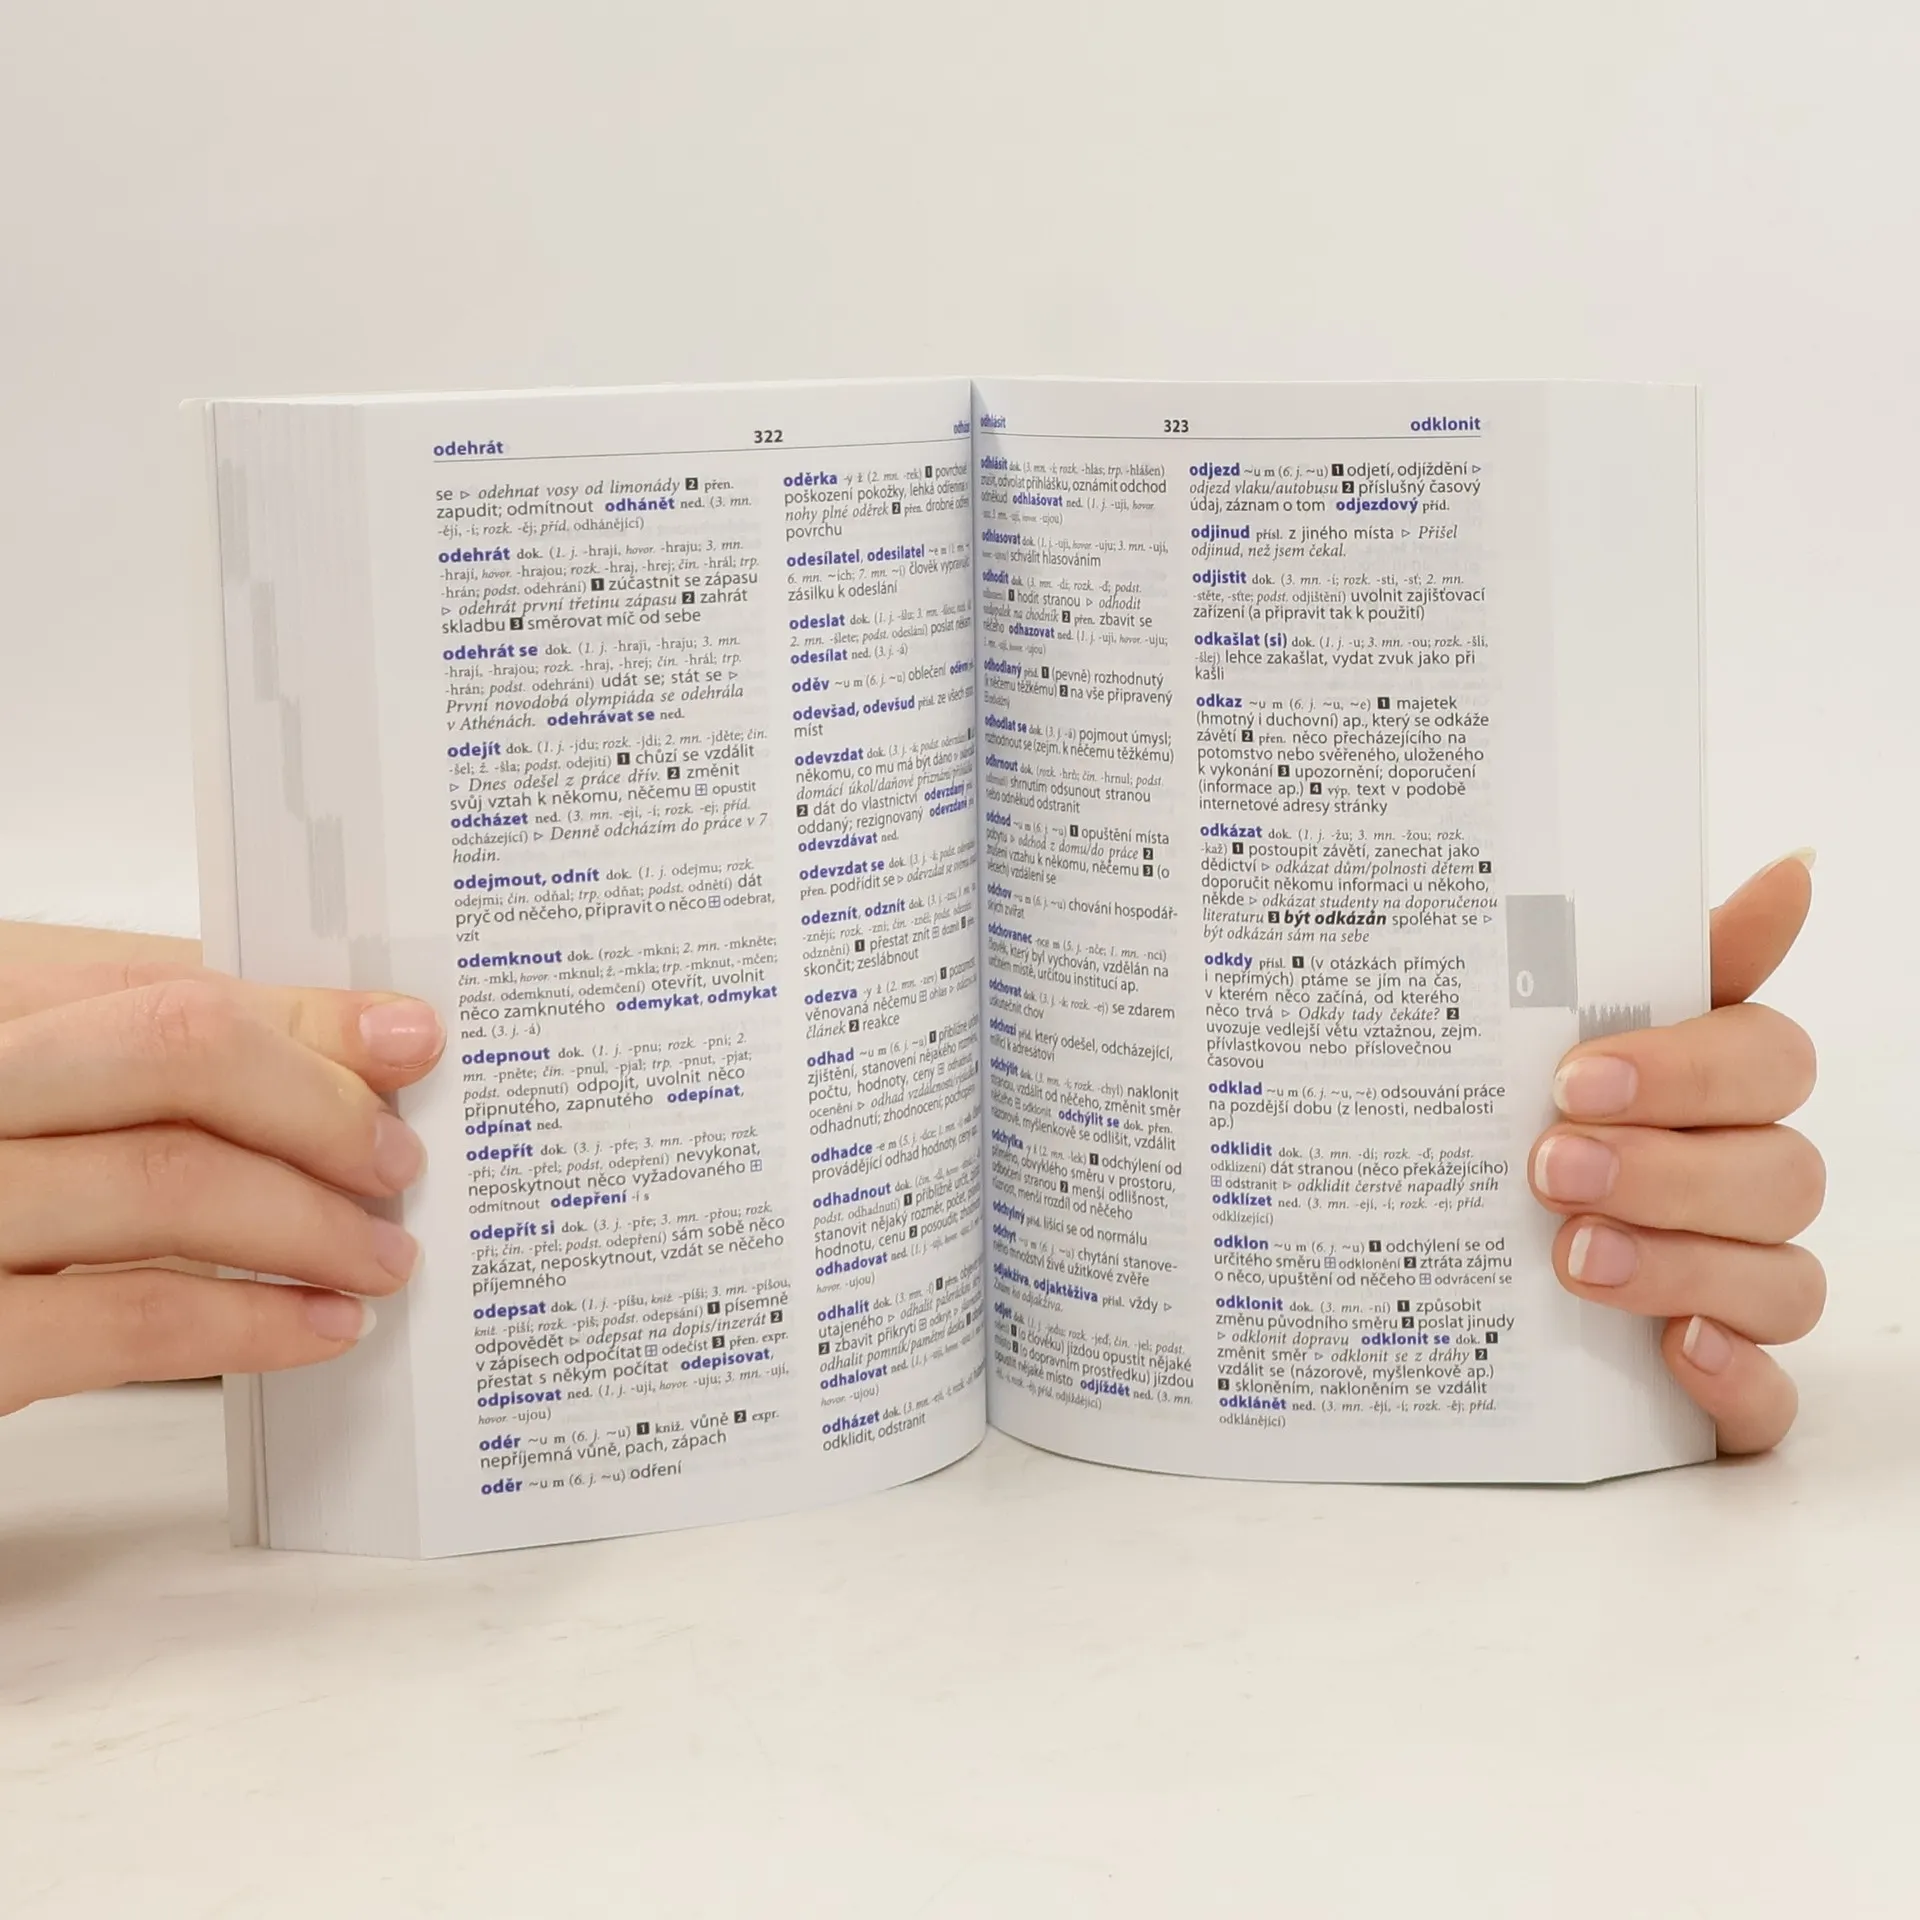 odehrát
322
se ▹ odehnat vosy od limonády 2 přen.
zapudit; odmítnout odhánět ned. (3. mn.
-ějí, -í; rozk. -ěj; příd. odhánějící)
odehrát dok. (1. j. -hraji, hovor. -hraju; 3. mn.
-hrají, hovor. -hrajou; rozk. -hraj, -hrej; čin. -hrál; trp.
-hrán; podst. odehrání) 1 zúčastnit se zápasu
▹ odehrát první třetinu zápasu 2 zahrát
skladbu 3 směrovat míč od sebe
odehrát se dok. (1. j. -hraji, -hraju; 3. mn.
-hrají, -hrajou; rozk. -hraj, -hrej; čin. -hrál; trp.
-hrán; podst. odehrání) udát se; stát se ▹
První novodobá olympiáda se odehrála
v Athénách. odehrávat se ned.
odejít dok. (1. j. -jdu; rozk. -jdi; 2. mn. -jděte; čin.
-šel; ž. -šla; podst. odejití) 1 chůzí se vzdálit
▹ Dnes odešel z práce dřív. 2 změnit
svůj vztah k někomu, něčemu ⊞ opustit
odcházet ned. (3. mn. -ejí, -í; rozk. -ej; příd.
odcházející) ▹ Denně odcházím do práce v 7
hodin.
odejmout, odnít dok. (1. j. odejmu; rozk.
odejmi; čin. odňal; trp. odňat; podst. odnětí) dát
pryč od něčeho, připravit o něco ⊞ odebrat,
vzít
odemknout dok. (rozk. -mkni; 2. mn. -mkněte;
čin. -mkl, hovor. -mknul; ž. -mkla; trp. -mknut, -mčen;
podst. odemknutí, odemčení) otevřít, uvolnit
něco zamknutého odemykat, odmykat
ned. (3. j. -á)
odepnout dok. (1. j. -pnu; rozk. -pni; 2.
mn. -pněte; čin. -pnul, -pjal; trp. -pnut, -pjat;
podst. odepnutí) odpojit, uvolnit něco
připnutého, zapnutého odepínat,
odpínat ned.
odepřít dok. (3. j. -pře; 3. mn. -přou; rozk.
-při; čin. -přel; podst. odepření) nevykonat,
neposkytnout něco vyžadovaného ⊞
odmítnout odepření -í s
odepřít si dok. (3. j. -pře; 3. mn. -přou; rozk.
-při; čin. -přel; podst. odepření) sám sobě něco
zakázat, neposkytnout, vzdát se něčeho
příjemného
odepsat dok. (1. j. -píšu, kniž. -píši; 3. mn. -píšou,
kniž. -píší; rozk. -piš; podst. odepsání) 1 písemně
odpovědět ▹ odepsat na dopis/inzerát 2
v zápisech odpočítat ⊞ odečíst 3 přen. expr.
přestat s někým počítat odepisovat,
odpisovat ned. (1. j. -uji, hovor. -uju; 3. mn. -ují,
hovor. -ujou)
odér ~u m (6. j. ~u) 1 kniž. vůně 2 expr.
nepříjemná vůně, pach, zápach
oděr ~u m (6. j. ~u) odření
oděrka -y ž (2. mn. -rek) 1 povrchové
poškození pokožky, lehká odřenina
nohy plné oděrek 2 přen. drobné
povrchu
odesílatel, odesilatel ~e m
6. mn. ~ích; 7. mn. ~i) člověk
zásilku k odeslání
odeslat dok.
2. mn. -šlete; podst. odeslání) poslat
odesílat ned. (3. j. -á)
oděv ~u m (6. j. ~u) oblečení
odevšad, odevšud přísl. ze všech
míst
odevzdat dok. (3. j. -á; podst. odevzdání)
někomu, co mu má být dáno
domácí úkol/daňové přiznání
2 dát do vlastnictví odevzdaný
oddaný; rezignovaný
odevzdávat ned.
odevzdat se dok. (3. j. -á; podst.
přen. podřídit se ▹ odevzdat se
odeznít, odznít dok.
-znějí; rozk. -zni; čin. -zněl; podst.
odznění) 1 přestat znít ⊞
skončit; zeslábnout
odezva -y ž (2. mn. -zev) 1
věnovaná něčemu ⊞ ohlas ▹
článek 2 reakce
odhad ~u m (6. j. ~u) 1 přibližné
zjištění, stanovení nějakého
počtu, hodnoty, ceny ⊞
ocenění ▹ odhad vzdálenosti
odhadnutí; zhodnocení;
odhadce -e m (5. j. -dce;
provádějící odhad hodnoty, ceny
odhadnout dok.
podst. odhadnutí) 1 přibližně určit,
stanovit nějaký rozměr, počet,
hodnotu, cenu 2 posoudit,
odhadovat ned.
hovor. -ujou)
odhalit dok. (3. mn. -í) 1 přen.
utajeného ▹ odhalit
2 zbavit přikrytí ⊞ odkrýt ▹
odhalit pomník/pamětní desku
odhalovat ned.
hovor. -ujou)
odházet dok.
odklidit, odstranit
odhlásit
323
odklonit
odhlásit dok. (3. mn. -í; rozk. -hlas; trp. -hlášen)
zrušit, odvolat přihlášku, oznámit odchod
odněkud odhlašovat ned. (1. j. -uji, hovor.
-uju; 3. mn. -ují, hovor. -ujou)
odhlasovat dok. (1. j. -uji, hovor. -uju; 3. mn. -ují,
hovor. -ujou) schválit hlasováním
odhodit dok. (3. mn. -dí; rozk. -ď; podst.
odhození) 1 hodit stranou ▹ odhodit
nedopalek na chodník 2 přen. zbavit se
něčeho odhazovat ned. (1. j. -uji, hovor. -uju;
3. mn. -ují, hovor. -ujou)
odhodlaný příd. 1 (pevně) rozhodnutý
(k něčemu těžkému) 2 na vše připravený
odhodlat se dok. (3. j. -á) pojmout úmysl;
rozhodnout se (zejm. k něčemu těžkému)
odhrnout dok. (rozk. -hrň; čin. -hrnul; podst.
odhrnutí) shrnutím odsunout stranou
nebo odněkud odstranit
odchod ~u m (6. j. ~u) 1 opuštění místa
pobytu ▹ odchod z domu/do práce 2
zrušení vztahu k někomu, něčemu 3 (o
věcech) vzdálení se
odchov ~u m (6. j. ~u) chování hospodář-
ských zvířat
odchovanec -nce m (5. j. -nče; 1. mn. -nci)
člověk, který byl vychován, vzdělán na
určitém místě, určitou institucí ap.
odchovat dok. (3. j. -á; rozk. -ej) se zdarem
uskutečnit chov
odchozí příd. který odešel, odcházející,
mířící k adresátovi
odchýlit dok. (3. mn. -í; rozk. -chyl) naklonit
stranou, vzdálit od něčeho, změnit směr
něčeho ⊞ odklonit odchýlit se dok. přen.
názorově, myšlenkově se odlišit, vzdálit
odchylka -y ž (2. mn. -lek) 1 odchýlení od
přímého, obvyklého směru v prostoru,
odbočení stranou 2 menší odlišnost,
různost, menší rozdíl od něčeho
odchylný příd. lišící se od normálu
odchyt ~u m (6. j. ~u) chytání stanove-
ného množství živé užitkové zvěře
odjakživa, odjaktěživa přísl. vždy ▹
Znám ho odjakživa.
odjet dok. (1. j. -jedu; rozk. -jeď; čin. -jel; podst.
odjetí) 1 (o člověku) jízdou opustit nějaké
místo 2 (o dopravním prostředku) jízdou
opustit nějaké místo odjíždět ned. (3. mn.
-ějí, -í; rozk. -ěj; příd. odjíždějící)
odjezd ~u m (6. j. ~u) 1 odjetí, odjíždění ▹
odjezd vlaku/autobusu 2 příslušný časový
údaj, záznam o tom odjezdový příd.
odjinud přísl. z jiného místa ▹ Přišel
odjinud, než jsem čekal.
odjistit dok. (3. mn. -í; rozk. -sti, -sť; 2. mn.
-stěte, -sťte; podst. odjištění) uvolnit zajišťovací
zařízení (a připravit tak k použití)
odkašlat (si) dok. (1. j. -u; 3. mn. -ou; rozk. -šli,
-šlej) lehce zakašlat, vydat zvuk jako při
kašli
odkaz ~u m (6. j. ~u, ~e) 1 majetek
(hmotný i duchovní) ap., který se odkáže
závětí 2 přen. něco přecházejícího na
potomstvo nebo svěřeného, uloženého
k vykonání 3 upozornění; doporučení
(informace ap.) 4 výp. text v podobě
internetové adresy stránky
odkázat dok. (1. j. -žu; 3. mn. -žou; rozk.
-kaž) 1 postoupit závětí, zanechat jako
dědictví ▹ odkázat dům/polnosti dětem 2
doporučit někomu informaci u někoho,
někde ▹ odkázat studenty na doporučenou
literaturu 3 být odkázán spoléhat se ▹
být odkázán sám na sebe
odkdy přísl. 1 (v otázkách přímých
i nepřímých) ptáme se jím na čas,
v kterém něco začíná, od kterého
něco trvá ▹ Odkdy tady čekáte? 2
uvozuje vedlejší větu vztažnou, zejm.
přívlastkovou nebo příslovečnou
časovou
odklad ~u m (6. j. ~u, ~ě) odsouvání práce
na pozdější dobu (z lenosti, nedbalosti
ap.)
odklidit dok. (3. mn. -dí; rozk. -ď; podst.
odklizení) dát stranou (něco překážejícího)
⊞ odstranit ▹ odklidit čerstvě napadlý sníh
odklízet ned. (3. mn. -ejí, -í; rozk. -ej; příd.
odklízející)
odklon ~u m (6. j. ~u) 1 odchýlení se od
určitého směru ⊞ odklonění 2 ztráta zájmu
o něco, upuštění od něčeho ⊞ odvrácení se
odklonit dok. (3. mn. -ní) 1 způsobit
změnu původního směru 2 poslat jinudy
▹ odklonit dopravu odklonit se dok. 1
změnit směr ▹ odklonit se z dráhy 2
vzdálit se (názorově, myšlenkově ap.)
3 skloněním, nakloněním se vzdálit
odklánět ned. (3. mn. -ějí, -í; rozk. -ěj; příd.
odklánějící)
O